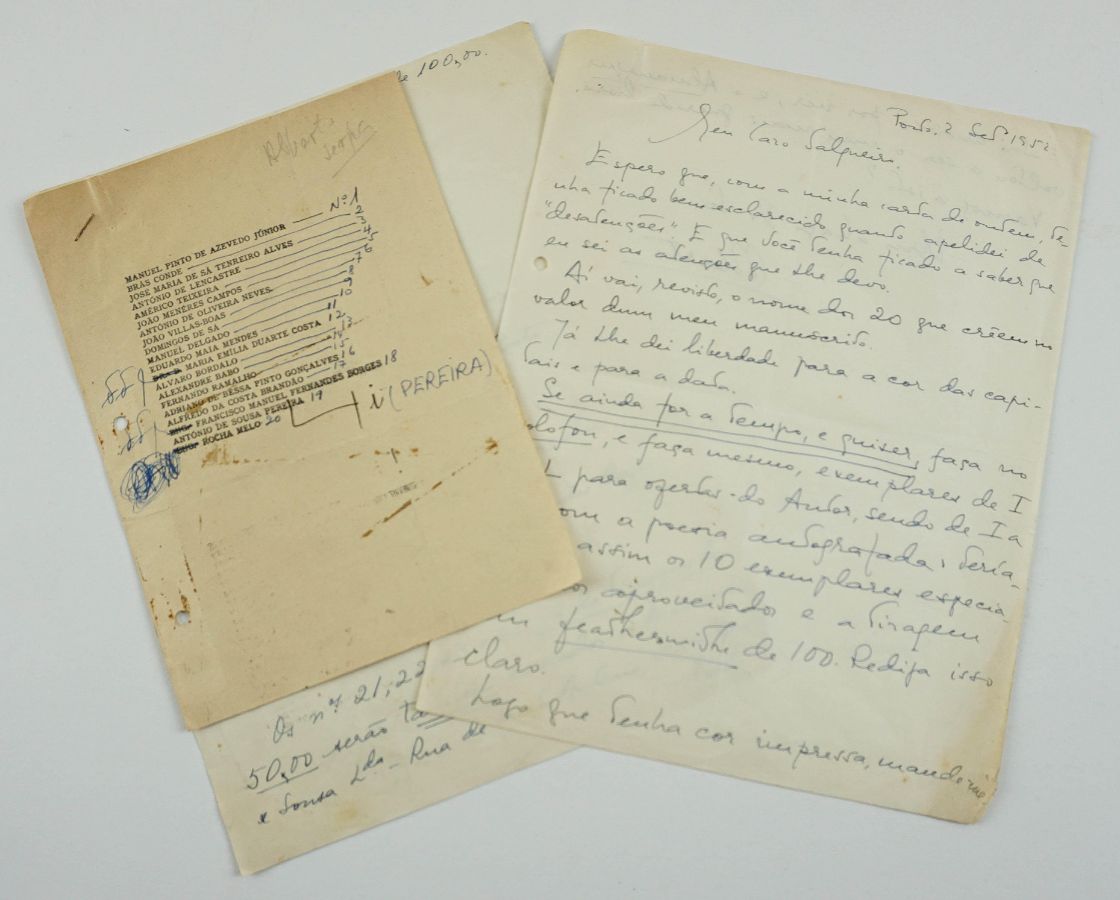 de 100,00.
Nº 1
MANUEL PINTO DE AZEVEDO JÚNIOR
BRAS CONDE 2
JOSÉ MARIA DE SÁ TENREIRO ALVES 3
ANTÓNIO DE LENCASTRE 4
AMÉRICO TEIXEIRA 5
JOÃO MENÉRES CAMPOS 6
ANTÓNIO DE OLIVEIRA NEVES 7
JOÃO VILLAS-BOAS 8
DOMINGOS DE SÁ 9
MANUEL DELGADO 10
EDUARDO MAIA MENDES 11
MARIA EMÍLIA DUARTE COSTA 12
ALVARO BORDALO 13
ALEXANDRE BABO 14
FERNANDO RAMALHO 15
ADRIANO DE BESSA PINTO GONÇALVES 16
ALFREDO DA COSTA BRANDÃO 17
ENG. FRANCISCO MANUEL FERNANDES BORGES 18
ANTÓNIO DE SOUSA PEREIRA 19
ENG. ROCHA MELO 20
i (PEREIRA)
Os nºs 21, 22
50,00 serão
e Sousa Lda - Rua de
Porto, 2 Set. 1952
Meu Caro Salgueiro.
Espero que, com a minha carta de ontem, te-
nha ficado bem esclarecido quanto apelidei de
"desatenções". E que Você tenha ficado a saber que
eu sei as atenções que lhe devo.
Aí vai, revisto, o nome dos 20 que crêem no
valor dum meu manuscrito.
Já lhe dei liberdade para a cor das capi-
tais e para a data.
Se ainda for a tempo, e quiser, faça no
olofon, e faça mesmo, exemplares de I
L para ofertas do Autor, sendo de I a
om a poesia autografada: teria-
assim os 10 exemplares especia-
aproveitados e a tiragem
featherweight de 100. Redija isso
claro.
Logo que tenha cor impressa, mande-me